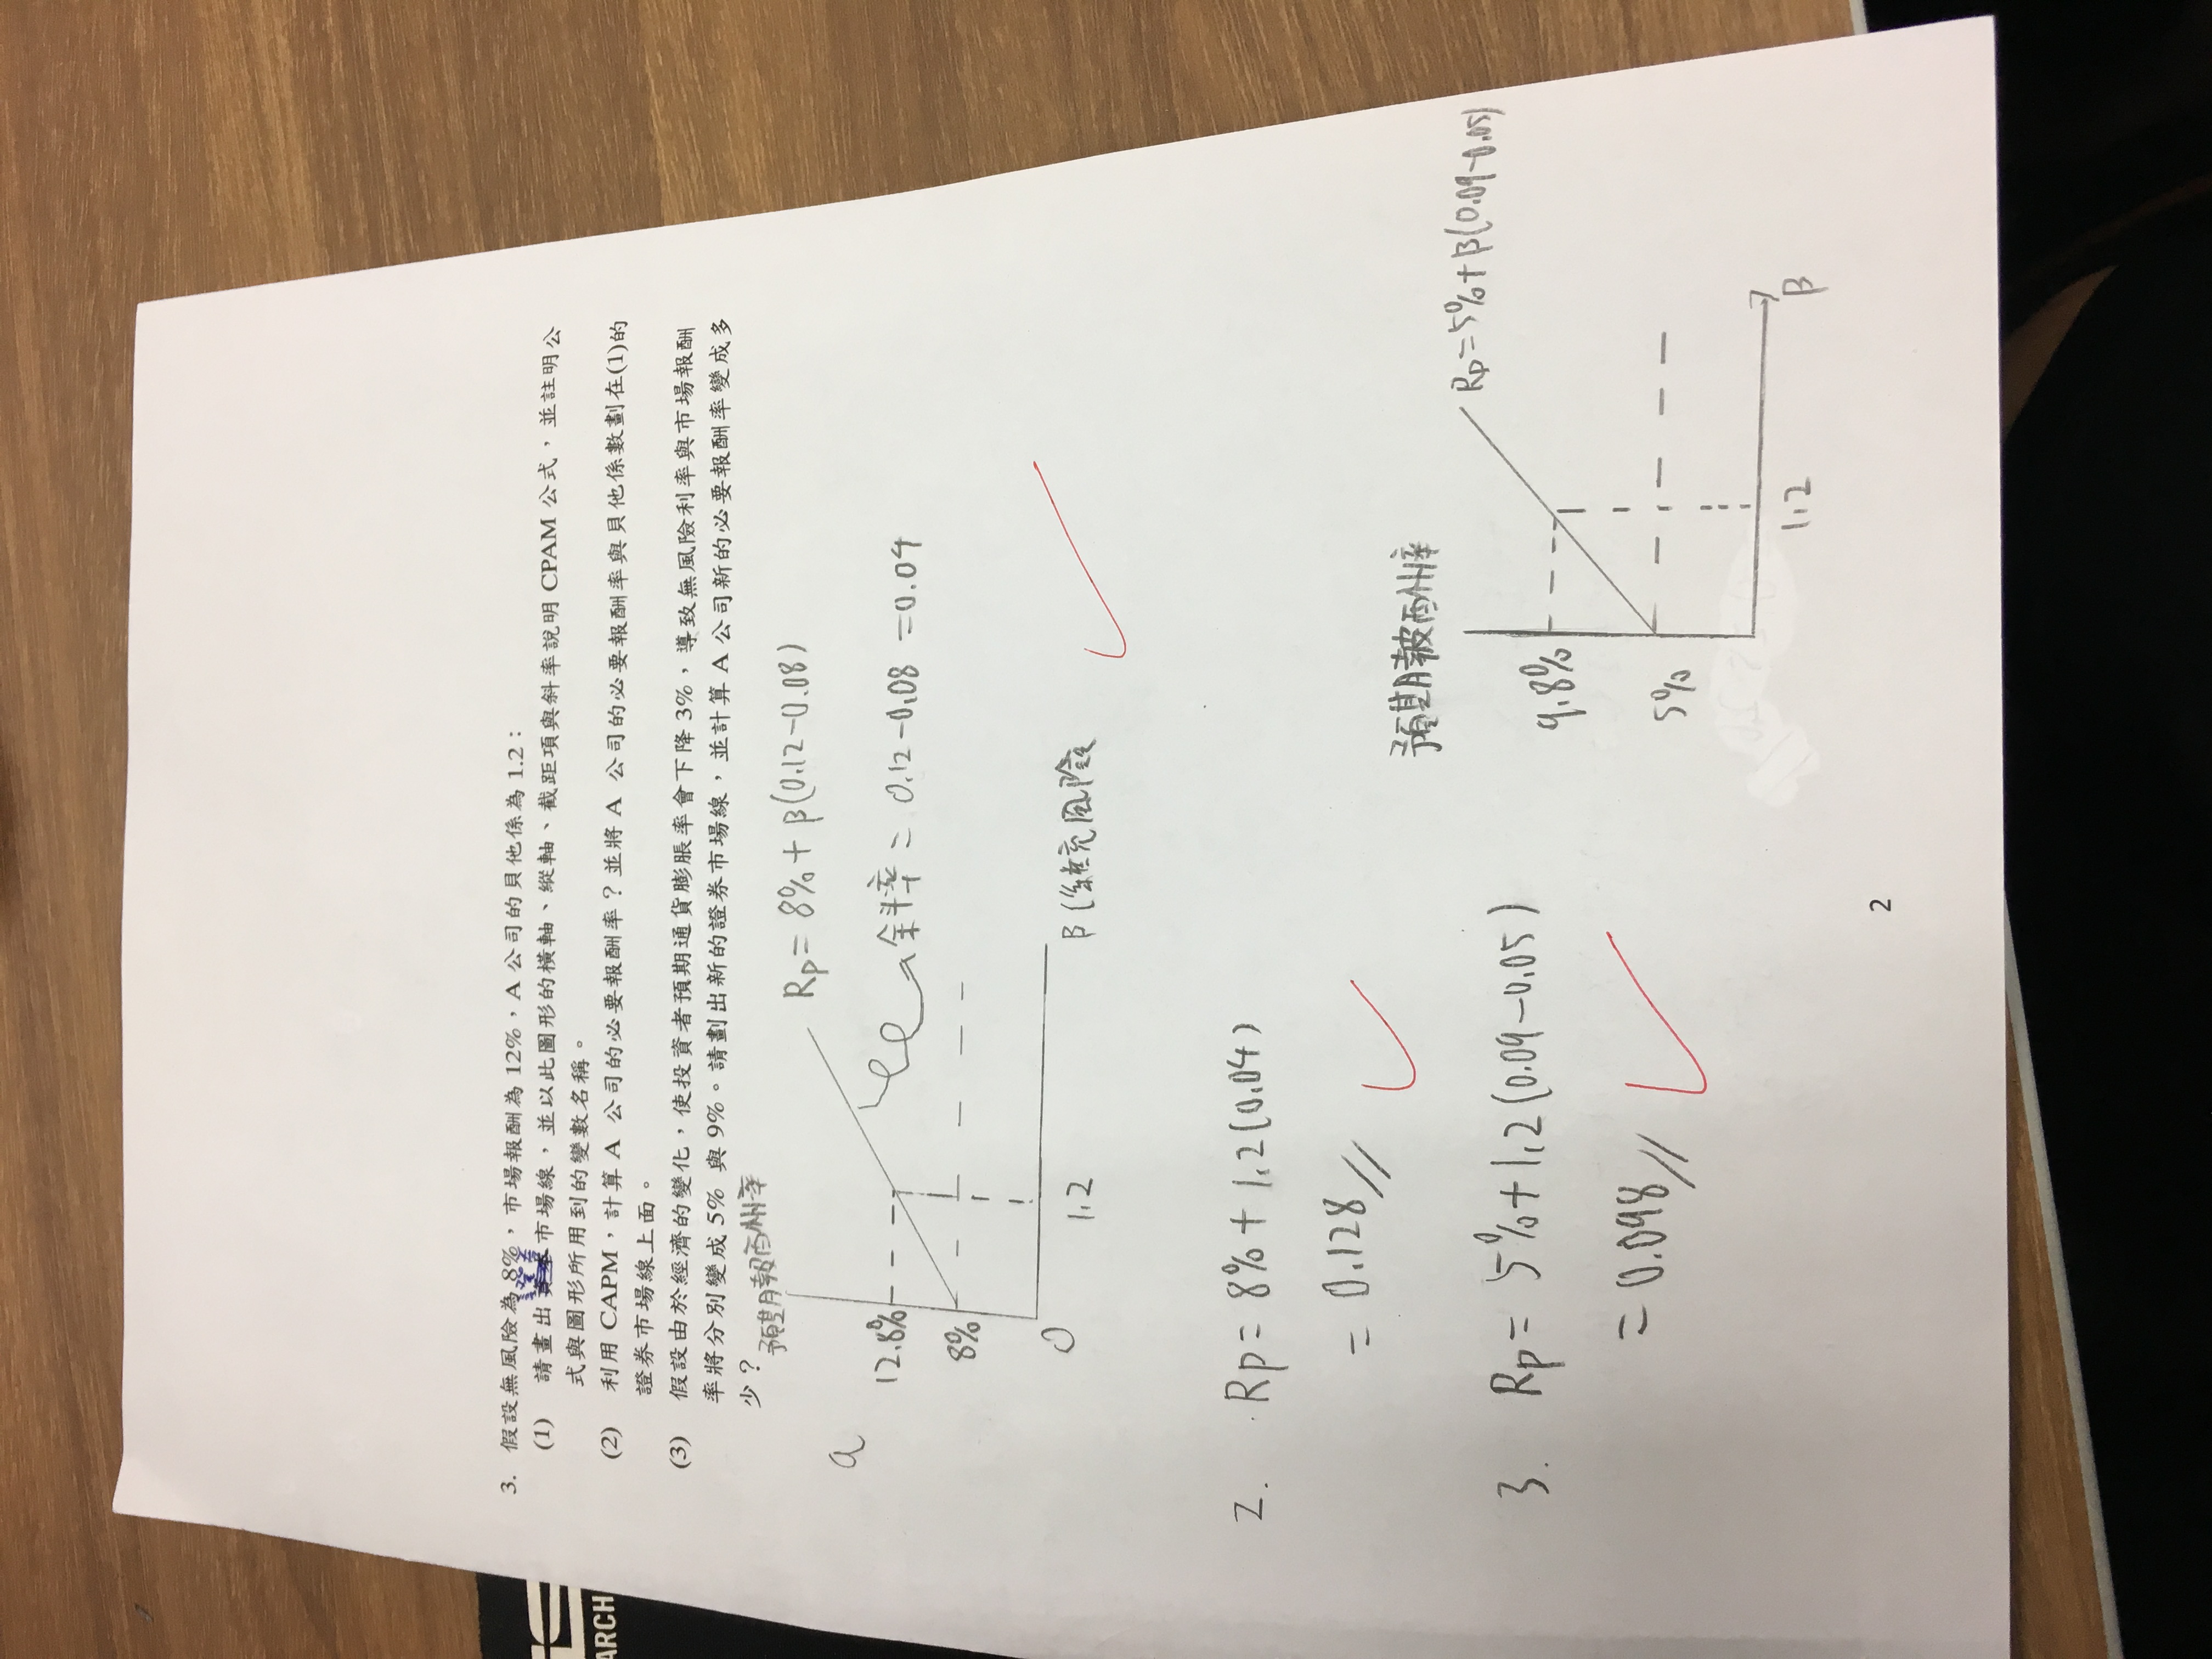 3. 假設無風險為 8%，市場報酬為 12%，A 公司的貝他係為 1.2：
(1) 請畫出市場線，並以此圖形的橫軸、縱軸、截距項與斜率說明 CPAM 公式，並註明公
式與圖形所用到的變數名稱。
(2) 利用 CAPM，計算 A 公司的必要報酬率？並將 A 公司的必要報酬率與貝他係數劃在(1)的
證券市場線上面。
(3) 假設由於經濟的變化，使投資者預期通貨膨脹率會下降 3%，導致無風險利率與市場報酬
率將分別變成 5% 與 9%。請劃出新的證券市場線，並計算 A 公司新的必要報酬率變成多
少？
ARCH
預期報酬率
Rp = 8% + β(0.12-0.08)
a
12.8%
斜率 = 0.12-0.08 = 0.04
8%
0
1.2
β(系統風險
2. Rp = 8% + 1.2(0.04)
= 0.128//
預期報酬率
Rp = 5% + β(0.09-0.05)
3. Rp = 5% + 1.2(0.09-0.05)
9.8%
= 0.098//
5%
1.2
β
2